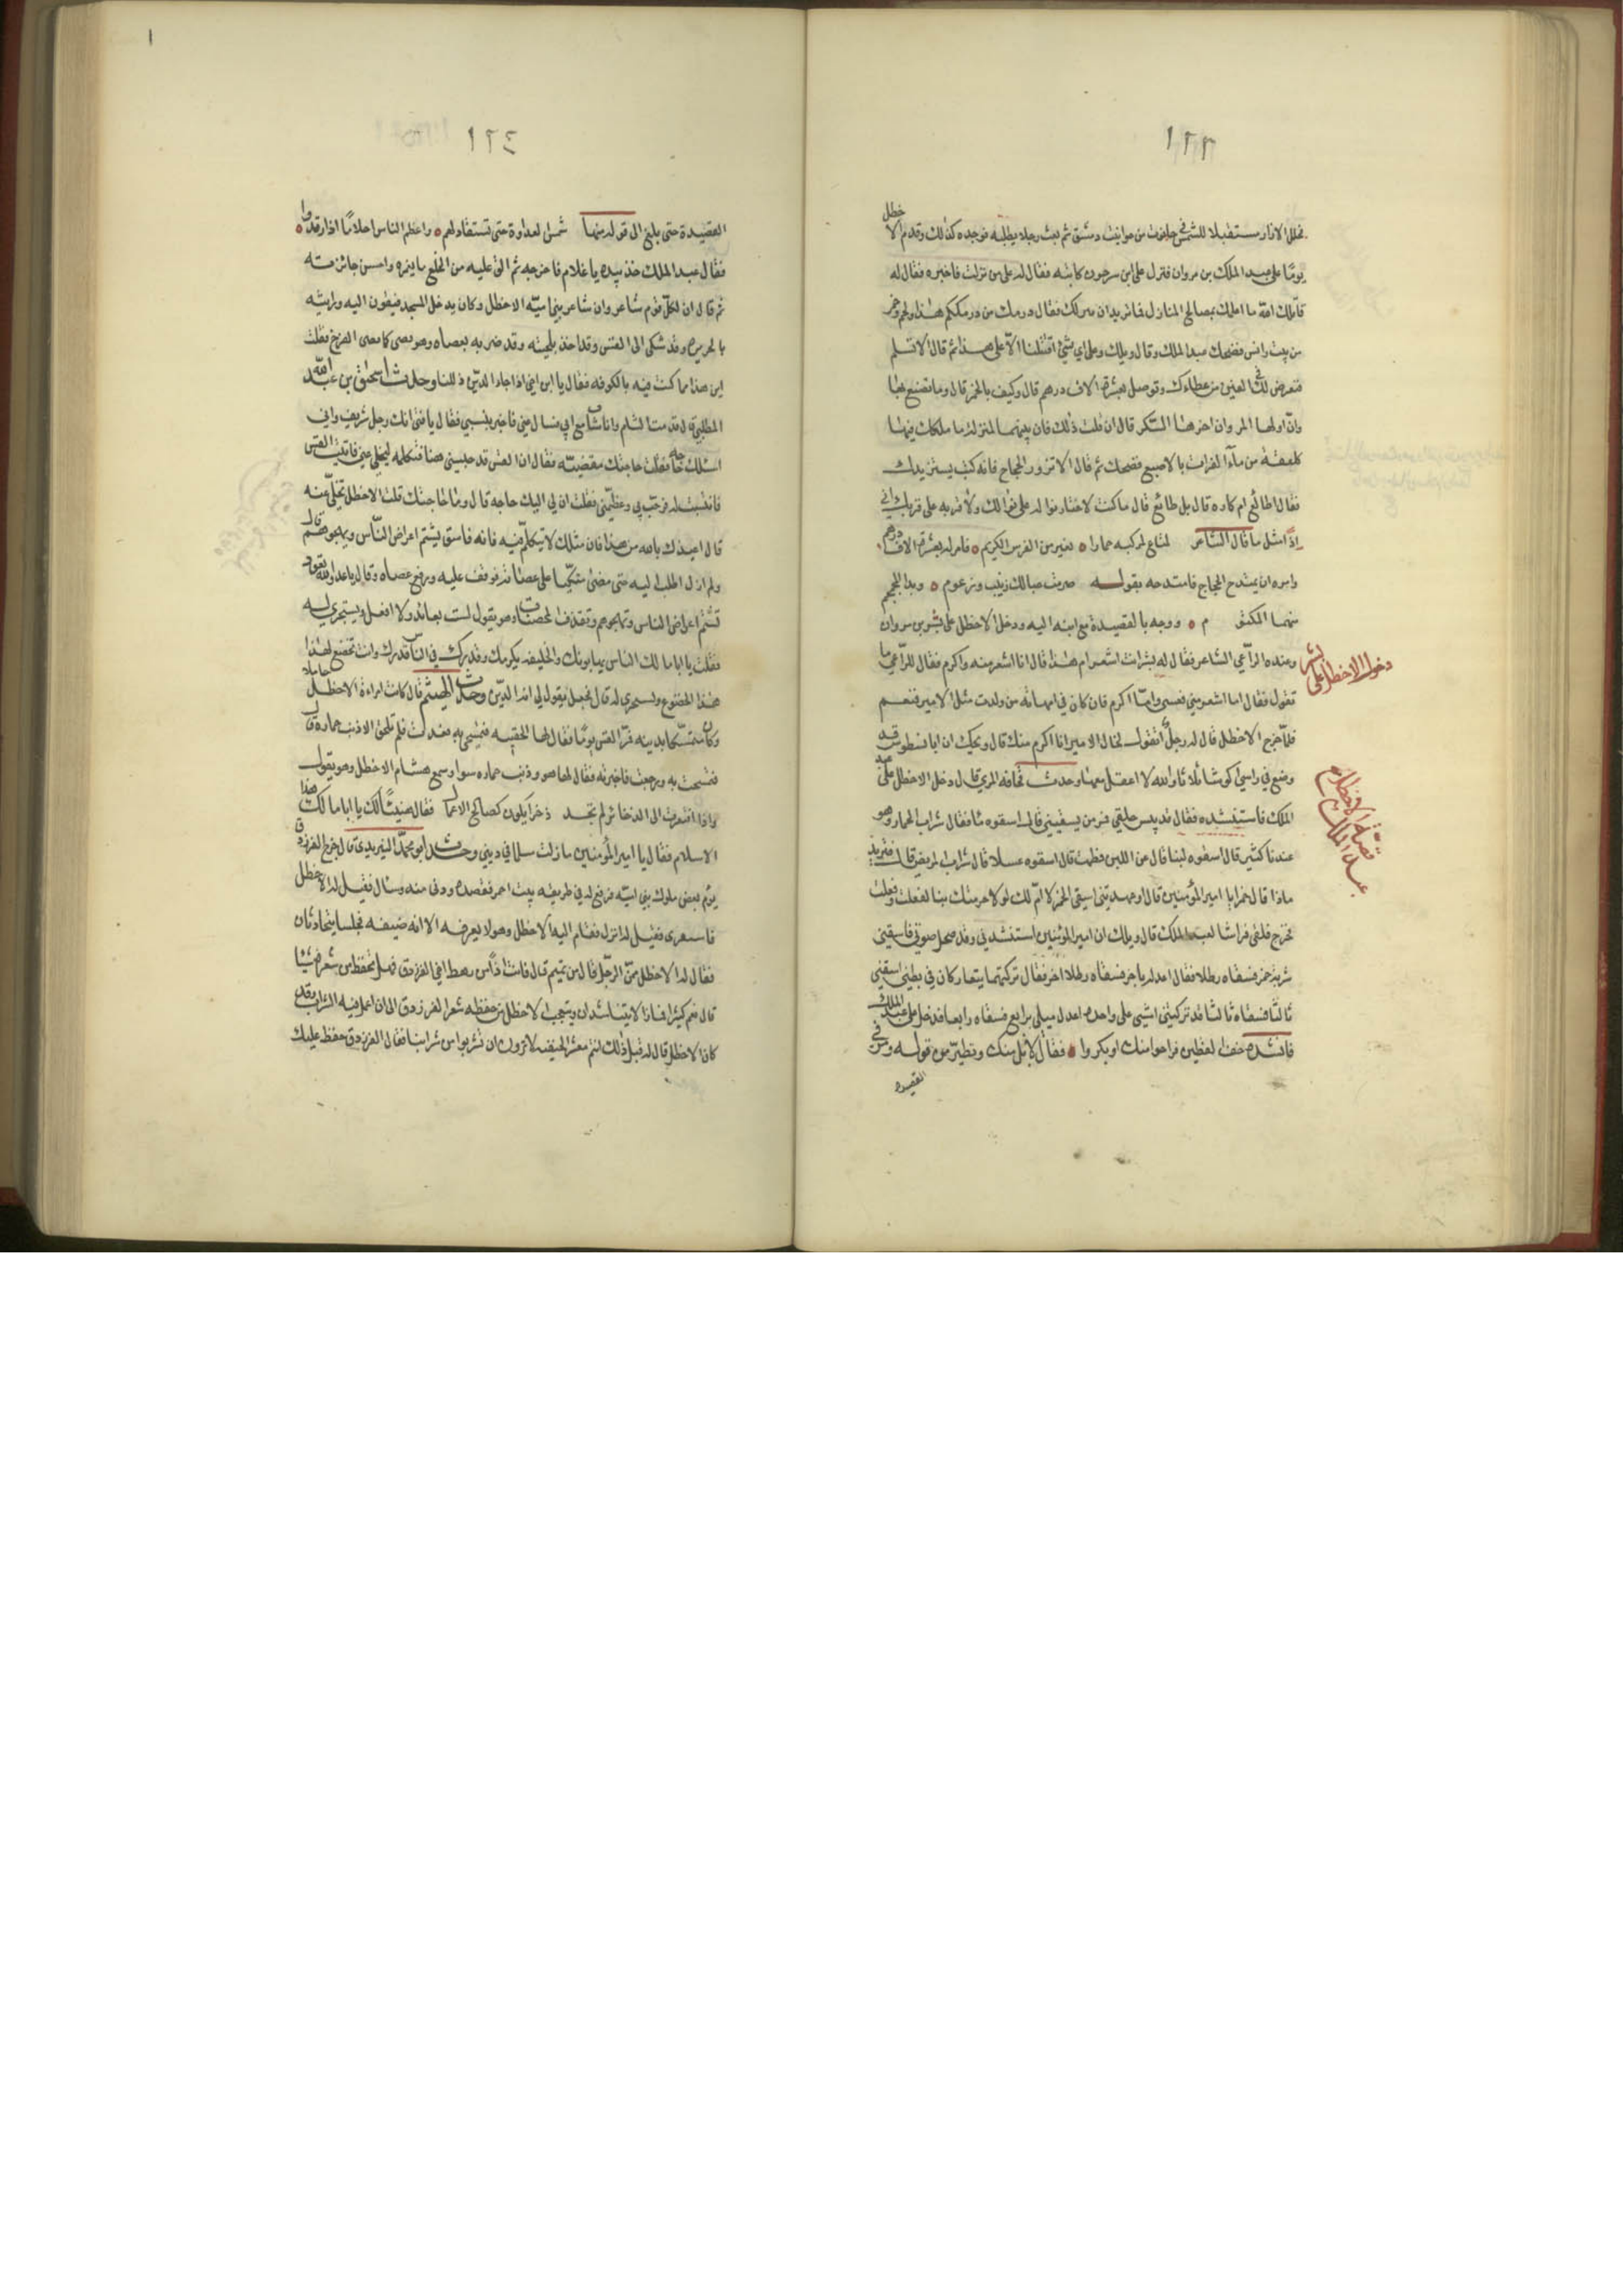 ١٢٣
محلل الازار مستقبلا للشمس في حانوت من حوانيت دمشق ثم بعث رجلا يطلبه فوجده كذلك وقدم الاخطل
يومًا على عبد الملك بن مروان فنزل على ابن سرجون كاتبه فقال له على من نزلت فاخبره فقال له
قاتلك الله ما اعلمك بصالح المنازل فما تريد ان ينزلك فقال درمك من درمككم هذا ولحم وخمر
من بيت راس فضحك عبد الملك وقال ويلك وعلى اي شيئ اقتتلنا الا على هذا ثم قال الا تسلم
فنفرض لك في العين من عطاءك ونوصل بعشرة الاف درهم قال وكيف بالخمر قال وما تصنع بها
وان اولها لمر وان اخرها السكر قال ان قلت ذلك فان بينهما لمنزلة ما ملكك فيها
كلعقة من ماء الفرات بالاصبع فضحك ثم قال الا تزور الحجاج فانه كتب يستزيرك
فقال اطائع ام كاره قال بل طائع قال ما كنت لاختار نواله على نوالك ولا قربه على قربك اني
اذًا لمثل ما قال الشاعر كمبتاع ليركبه حمارا بعيره من الفرس الكريم فامر له بعشرة الاف درهم
وامره ان يمتدح الحجاج فامتدحه بقوله صرمت حبالك زينب ورعوم وبدا المجمجم
منهما المكتوم ووجه بالقصيدة مع ابنه اليه ودخل الاخطل على بشر بن مروان
وعنده الراعي الشاعر فقال له بشر انت اشعر ام هذا قال انا اشعر منه واكرم فقال للراعي ما
تقول فقال اما اشعر مني فعسى واما اكرم فان كان في امهاته من ولدت مثل الامير فنعم
فلما خرج الاخطل قال له رجل اتقول لخال الامير انا اكرم منك قال ويحك ان ابا نسطوس قد
وضع في راسي اكوسًا ثلاثا والله لا اعقل معها وحدث قحافة المري قال دخل الاخطل على عبد
الملك فاستنشده فقال قد يبس حلقي فمر من يسقيني قال اسقوه ماء فقال شراب الحمار وهو
عندنا كثير قال اسقوه لبنا قال عن اللبن فطمت قال اسقوه عسلا قال شراب المريض قال فتريد
ماذا قال خمرا يا امير المؤمنين قال او عهدتني اسقي الخمر لا ام لك لولا حرمتك بنا لفعلت وفعلت
فخرج فلقى فراشا لعبد الملك قال ويلك ان امير المؤمنين استنشدني وقد صحل صوتي فاسقني
شربة خمر فسقاه رطلا فقال اعدله باخر فسقاه رطلا اخر فقال تركتهما يتعاركان في بطني اسقني
ثالثا فسقاه ثالثا فقال تركتني امشي على واحدة اعدل ميلي برابع فسقاه رابعا فدخل على عبد الملك
فانشده خف القطين فراحوا منك او بكروا فقال لا بل منك وتطير من قوله ومر في
القصيده
دخول الاخطل على بشر
قصة الاخطل مع عبد الملك
١٢٤
١
القصيدة حتى بلغ الى قوله منها شمس العداوة حتى تستقاد لهم واعظم الناس احلامًا اذا قدروا
فقال عبد الملك خذ بيده يا غلام فاخرجه ثم الق عليه من الخلع ما يغمره واحسن جائزته
ثم قال ان لكل قوم شاعر وان شاعر بني امية الاخطل وكان يدخل المسجد فيقومون اليه ورايته
بالجزيرة وقد شكى الى القس وقد اخذ بلحيته وقد ضربه بعصاه وهو يصئ كما يصئ الفرخ فقلت
اين هذا مما كنت فيه بالكوفة فقال يا ابن اخي اذا جاء الدين ذللنا وحدث اسحق بن عبد الله
المطلبي قال قدمت الشام وانا شاب مع ابي فسال عني فاخبر بنسبي فقال يا فتى انك رجل شريف واني
اسئلك حاجة فقلت حاجتك مقضية فقال ان القس قد حبسني هنا فتكلمه ليخلي عني فاتيت القس
فانتسبت له فرحب بي وعظمني فقلت ان لي اليك حاجه قال وما حاجتك قلت الاخطل تخلي عنه
قال اعيذك بالله من هذا فان مثلك لا يتكلم فيه فانه فاسق يشتم اعراض الناس ويهجوهم قال
ولم ازل اطلب اليه حتى مضى متكئًا على عصاه فوقف عليه ورفع عصاه وقال يا عدو الله تعود
تشتم اعراض الناس وتهجوهم وتقذف المحصنات وهو يقول لست بعائد ولا افعل ويستخزي له
فقلت يا ابا مالك الناس يهابونك والخليفه يكرمك وقدرك في الناس قدرك وانت تخضع لهذا
هذا الخضوع وتستخزي له قال فجعل يقول لي انه الدين وحدث الهيثم قال كانت امراة الاخطل حاملا
وكان متمسكا بدينه فمر القس يومًا فقال لها الحقيه فتمسحي به فعدت فلم تلحق الا ذنب حماره
فتمسحت به ورجعت فاخبرته فقال لها هو وذنب حماره سواء وسمع هشام الاخطل وهو يقول
واذا افتقرت الى الذخائر لم تجد ذخرا يكون كصالح الاعمال فقال هنيئًا لك يا ابا مالك هذا
الاسلام فقال يا امير المؤمنين ما زلت مسلما في ديني وحدث ابو محمد اليزيدي قال خرج الفرزدق
يؤم بعض ملوك بني امية فرفع له في طريقه بيت احمر فقصده ودنى منه وسال فقيل له الاخطل
فاستقرى فقيل له انزل فقام اليه الاخطل وهو لا يعرفه الا انه ضيفه فجلسا يتحادثان
فقال له الاخطل ممن الرجل قال من تميم قال فانت اذًا من رهط اخي الفرزدق فهل تحفظ من شعره شيئا
قال نعم كثيرا فما زالا يتناشدان ويتعجب الاخطل من حفظه شعر الفرزدق الى ان عمل فيه الشراب وقد
كان الاخطل قال له قبل ذلك انتم معشر الحنيفية لا ترون ان تشربوا من شرابنا فقال الفرزدق خفظ عليك